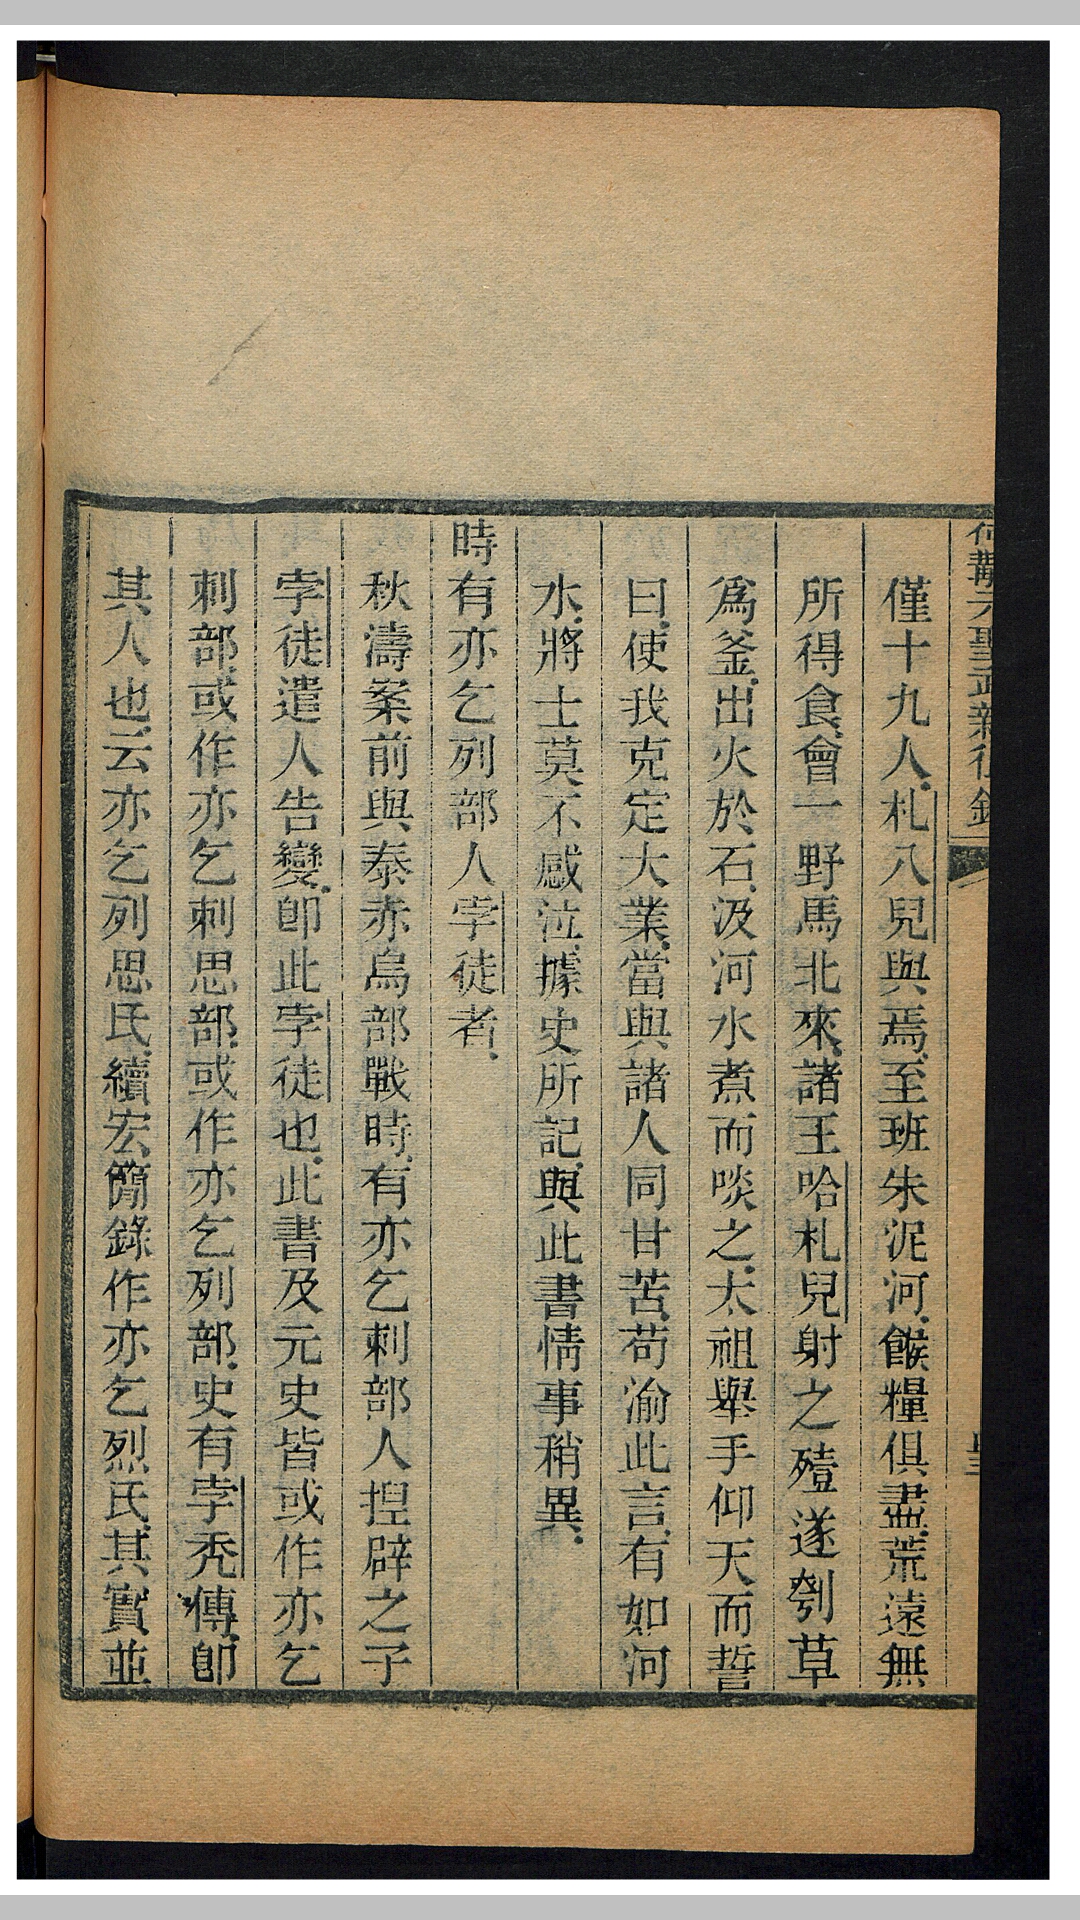 僅十九人札八兒與焉至班朱泥河餱糧俱盡荒遠無
所得食會一野馬北來諸王哈札兒射之殪遂刳草
爲釜出火於石汲河水煮而啖之太祖舉手仰天而誓
曰使我克定大業當與諸人同甘苦苟渝此言有如河
水將士莫不感泣據史所記與此書情事稍異
時有亦乞列部人孛徒者
秋濤案前與泰赤烏部戰時有亦乞剌部人揑辟之子
孛徒遣人告變卽此孛徒也此書及元史皆或作亦乞
剌部或作亦乞剌思部或作亦乞列部史有孛禿傳卽
其人也云亦乞列思氏續宏簡錄作亦乞烈氏其實並